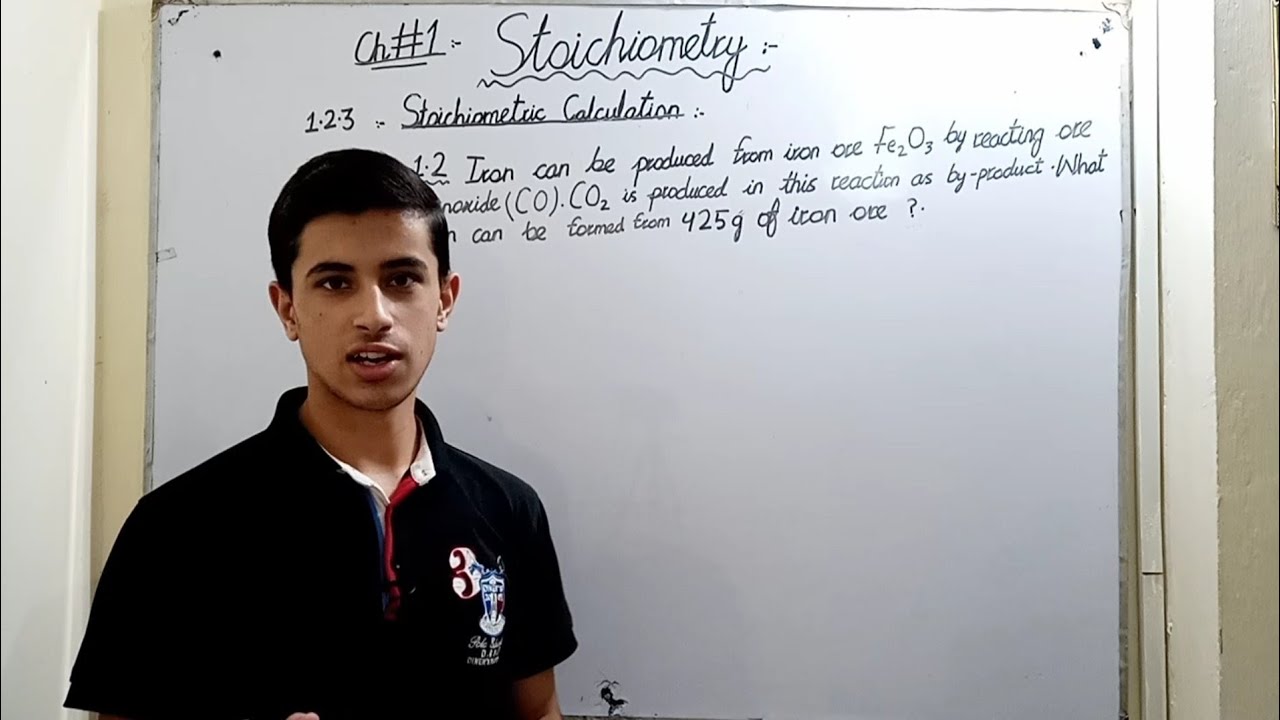 Ch#1:- Stoichiometry:-
1.2.3 :- Stoichiometric Calculation :-
1.2 Iron can be produced from iron ore Fe₂O₃ by reacting ore
noxide (CO). CO₂ is produced in this reaction as by-product. What
n can be formed from 425g of iron ore ?.
3